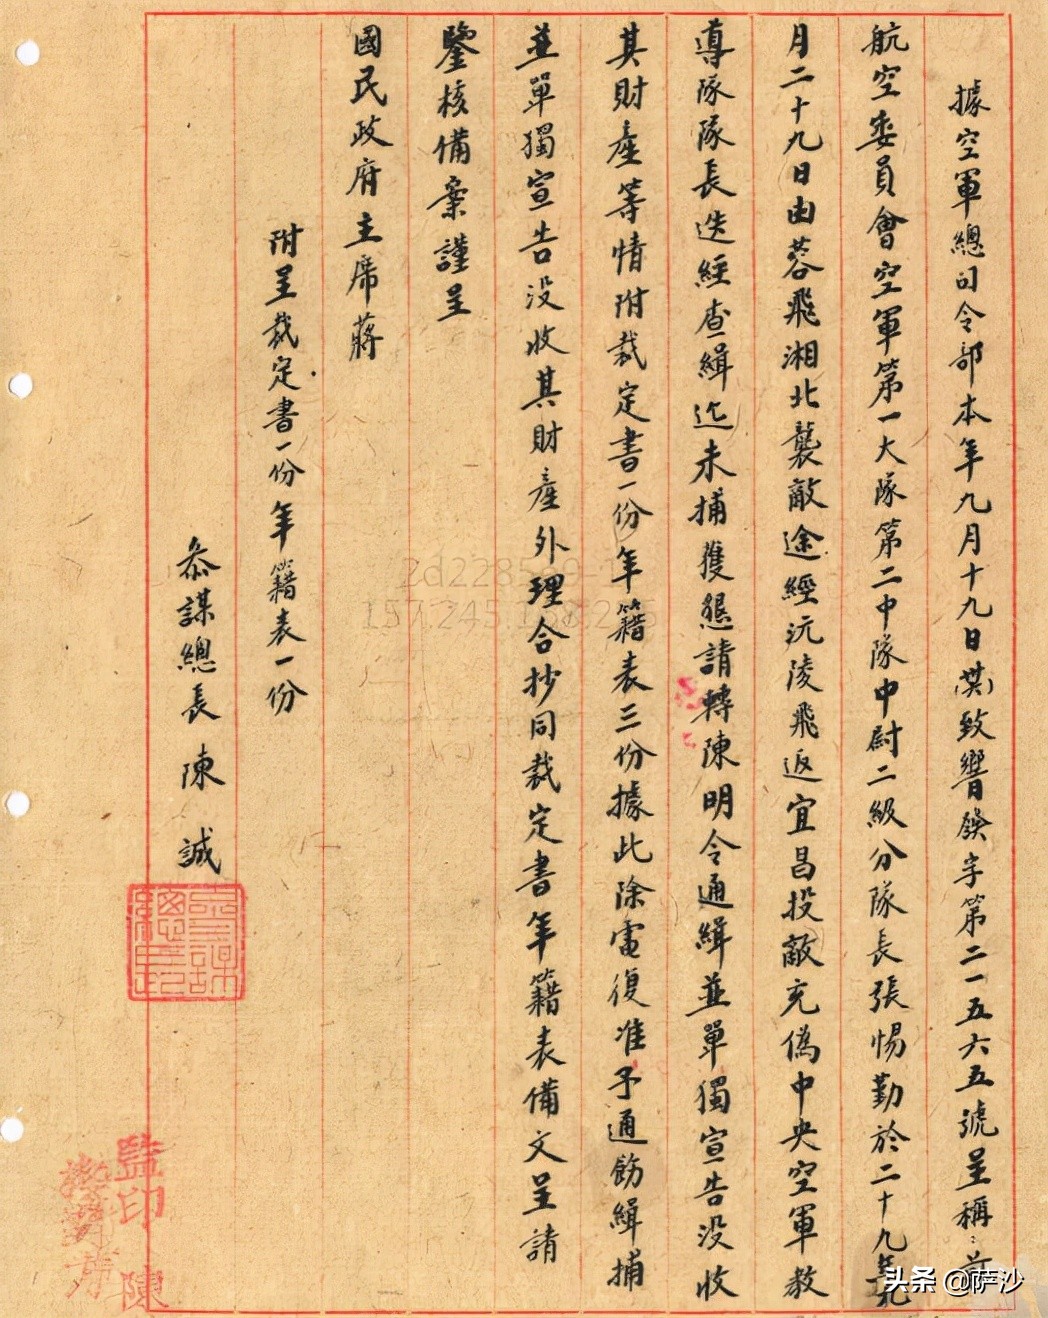 據空軍總司令部本年九月十九日致響發字第二一五六五號呈稱：前
航空委員會空軍第一大隊第二中隊中尉二級分隊長張惕勤於二十九年
月二十九日由蓉飛湘北襲敵途經沅陵飛返宜昌投敵充偽中央空軍教
導隊隊長迭經查緝迄未捕獲懇請轉陳明令通緝並單獨宣告沒收
其財產等情附裁定書一份年籍表三份據此除電復准予通飭緝捕
並單獨宣告沒收其財產外理合抄同裁定書年籍表備文呈請
鑒核備案謹呈
國民政府主席蔣
附呈裁定書一份年籍表一份
參謀總長陳誠
監印陳
2d228569-1
157.245.168.2
头条 @萨沙